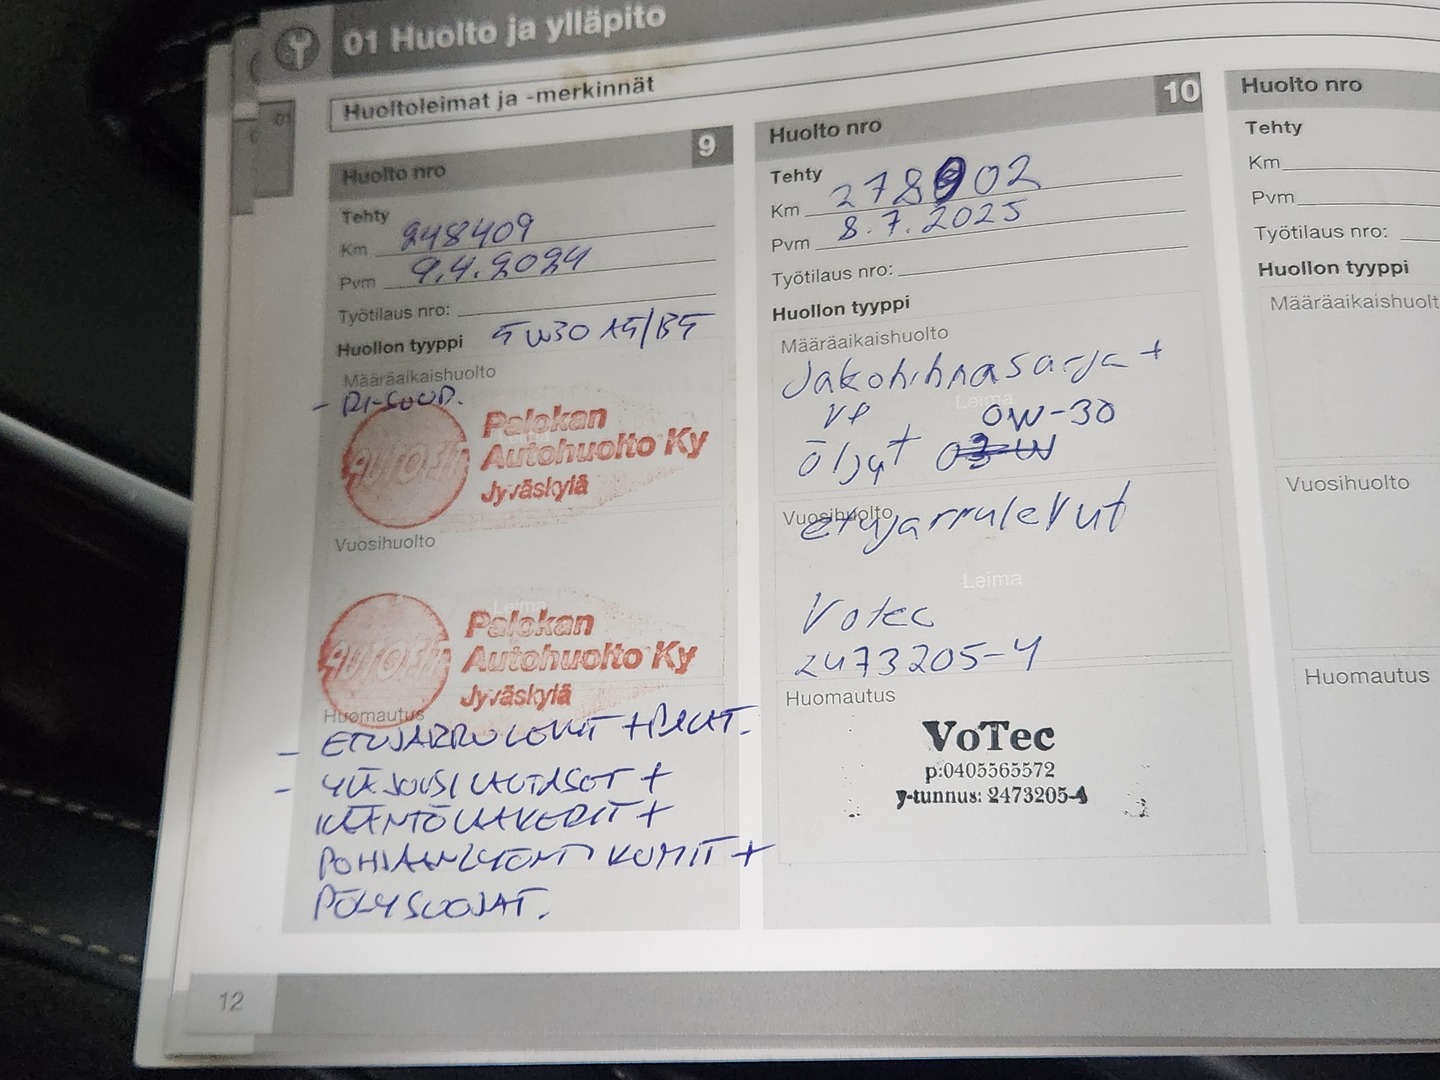 01 Huolto ja ylläpito
Huoltoleimat ja -merkinnät
Huolto nro 9
Tehty
Km 248409
Pvm 9.4.2024
Työtilaus nro:
Huollon tyyppi 5W30 A5/B5
Määräaikaishuolto
Palokan
Autohuolto Ky
Jyväskylä
Vuosihuolto
Leima
Palokan
Autohuolto Ky
Jyväskylä
Huomautus
- ETUJARRULEVYT + PALAT.
- YLÄJOUSILAUTASET +
KÄÄNTÖLAAKERIT +
POHJAANLYÖNTI KUMIT +
PÖLYSUOJAT.
Huolto nro 10
Tehty
Km 278902
Pvm 8.7.2025
Työtilaus nro:
Huollon tyyppi
Määräaikaishuolto
Jakohihnasarja +
Leima
VP 0W-30
öljyt
Vuosihuolto
etujarrulevyt
Leima
Votec
2473205-4
Huomautus
VoTec
p:0405565572
y-tunnus: 2473205-4
Huolto nro
Tehty
Km
Pvm
Työtilaus nro:
Huollon tyyppi
Määräaikaishuolt
Vuosihuolto
Huomautus
12